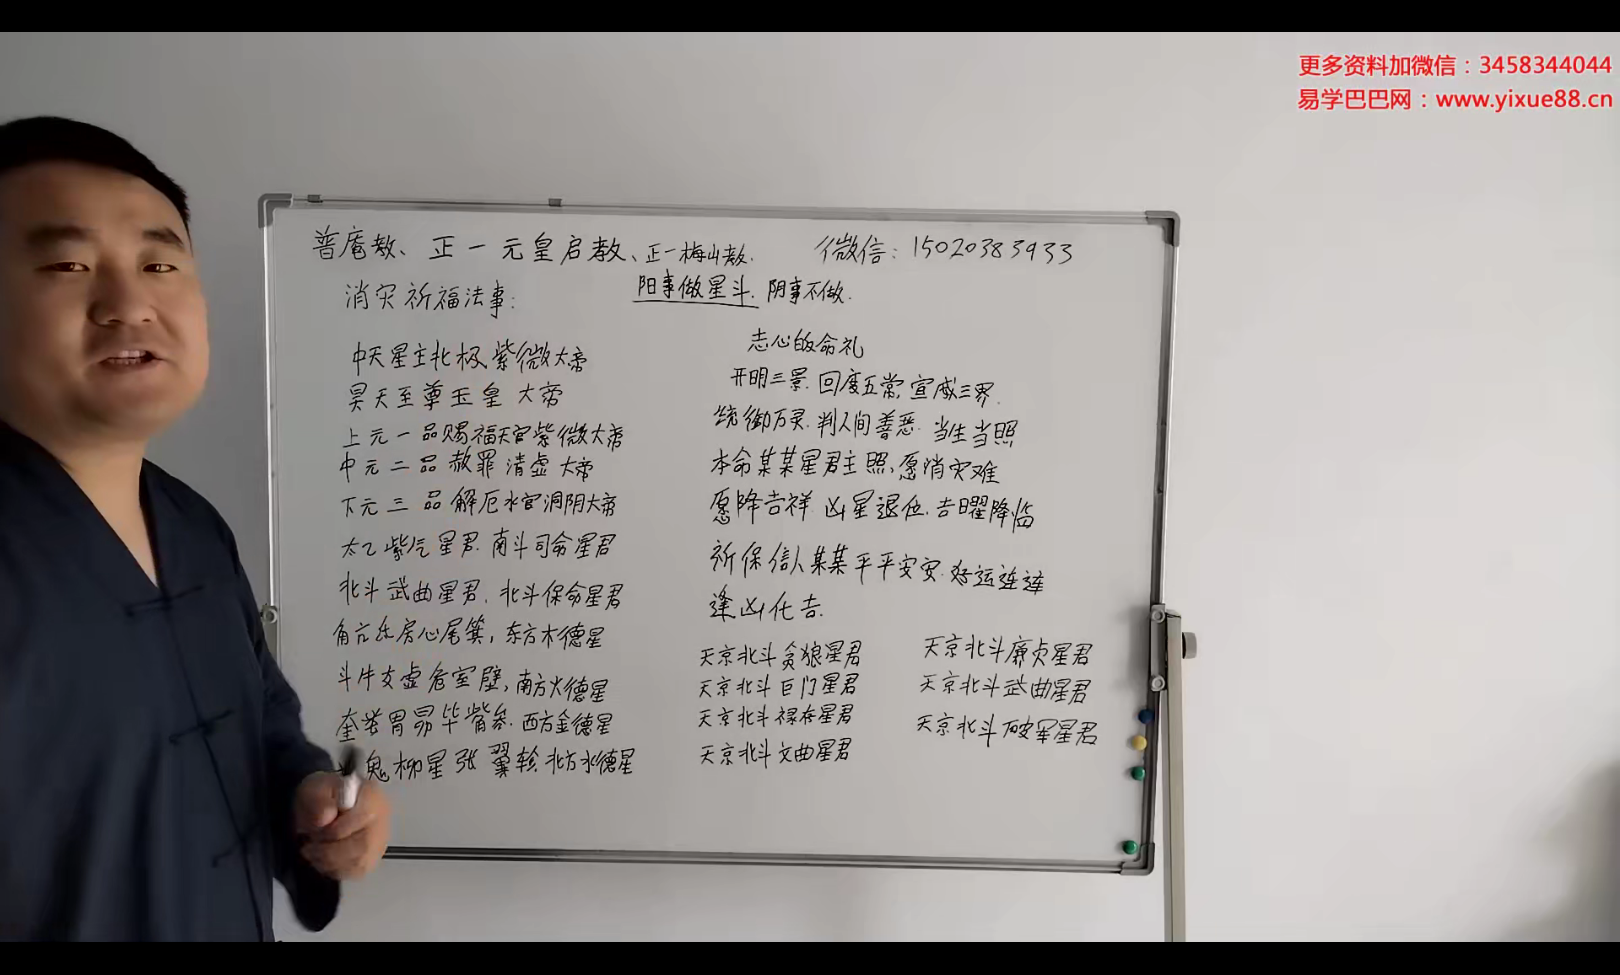 更多资料加微信：3458344044
易学巴巴网：www.yixue88.cn
普庵教、正一元皇启教、正一梅山教. 微信：15020383933
消灾祈福法事：
阳事做星斗. 阴事不做.
中天星主北极紫微大帝
昊天至尊玉皇大帝
上元一品赐福天官紫微大帝
中元二品赦罪清虚大帝
下元三品解厄水官洞阴大帝
太乙紫气星君. 南斗司命星君
北斗武曲星君. 北斗保命星君
角亢氐房心尾箕, 东方木德星
斗牛女虚危室壁, 南方火德星
奎娄胃昴毕觜参. 西方金德星
鬼柳星张翼轸 北方水德星
志心皈命礼
开明三景. 回度五常, 宣威三界.
统御万灵. 判人间善恶. 当生当照
本命某某星君主照, 愿消灾难
愿降吉祥. 凶星退位. 吉曜降临
祈保信人某某平平安安. 好运连连
逢凶化吉.
天京北斗贪狼星君
天京北斗巨门星君
天京北斗禄存星君
天京北斗文曲星君
天京北斗廉贞星君
天京北斗武曲星君
天京北斗破军星君